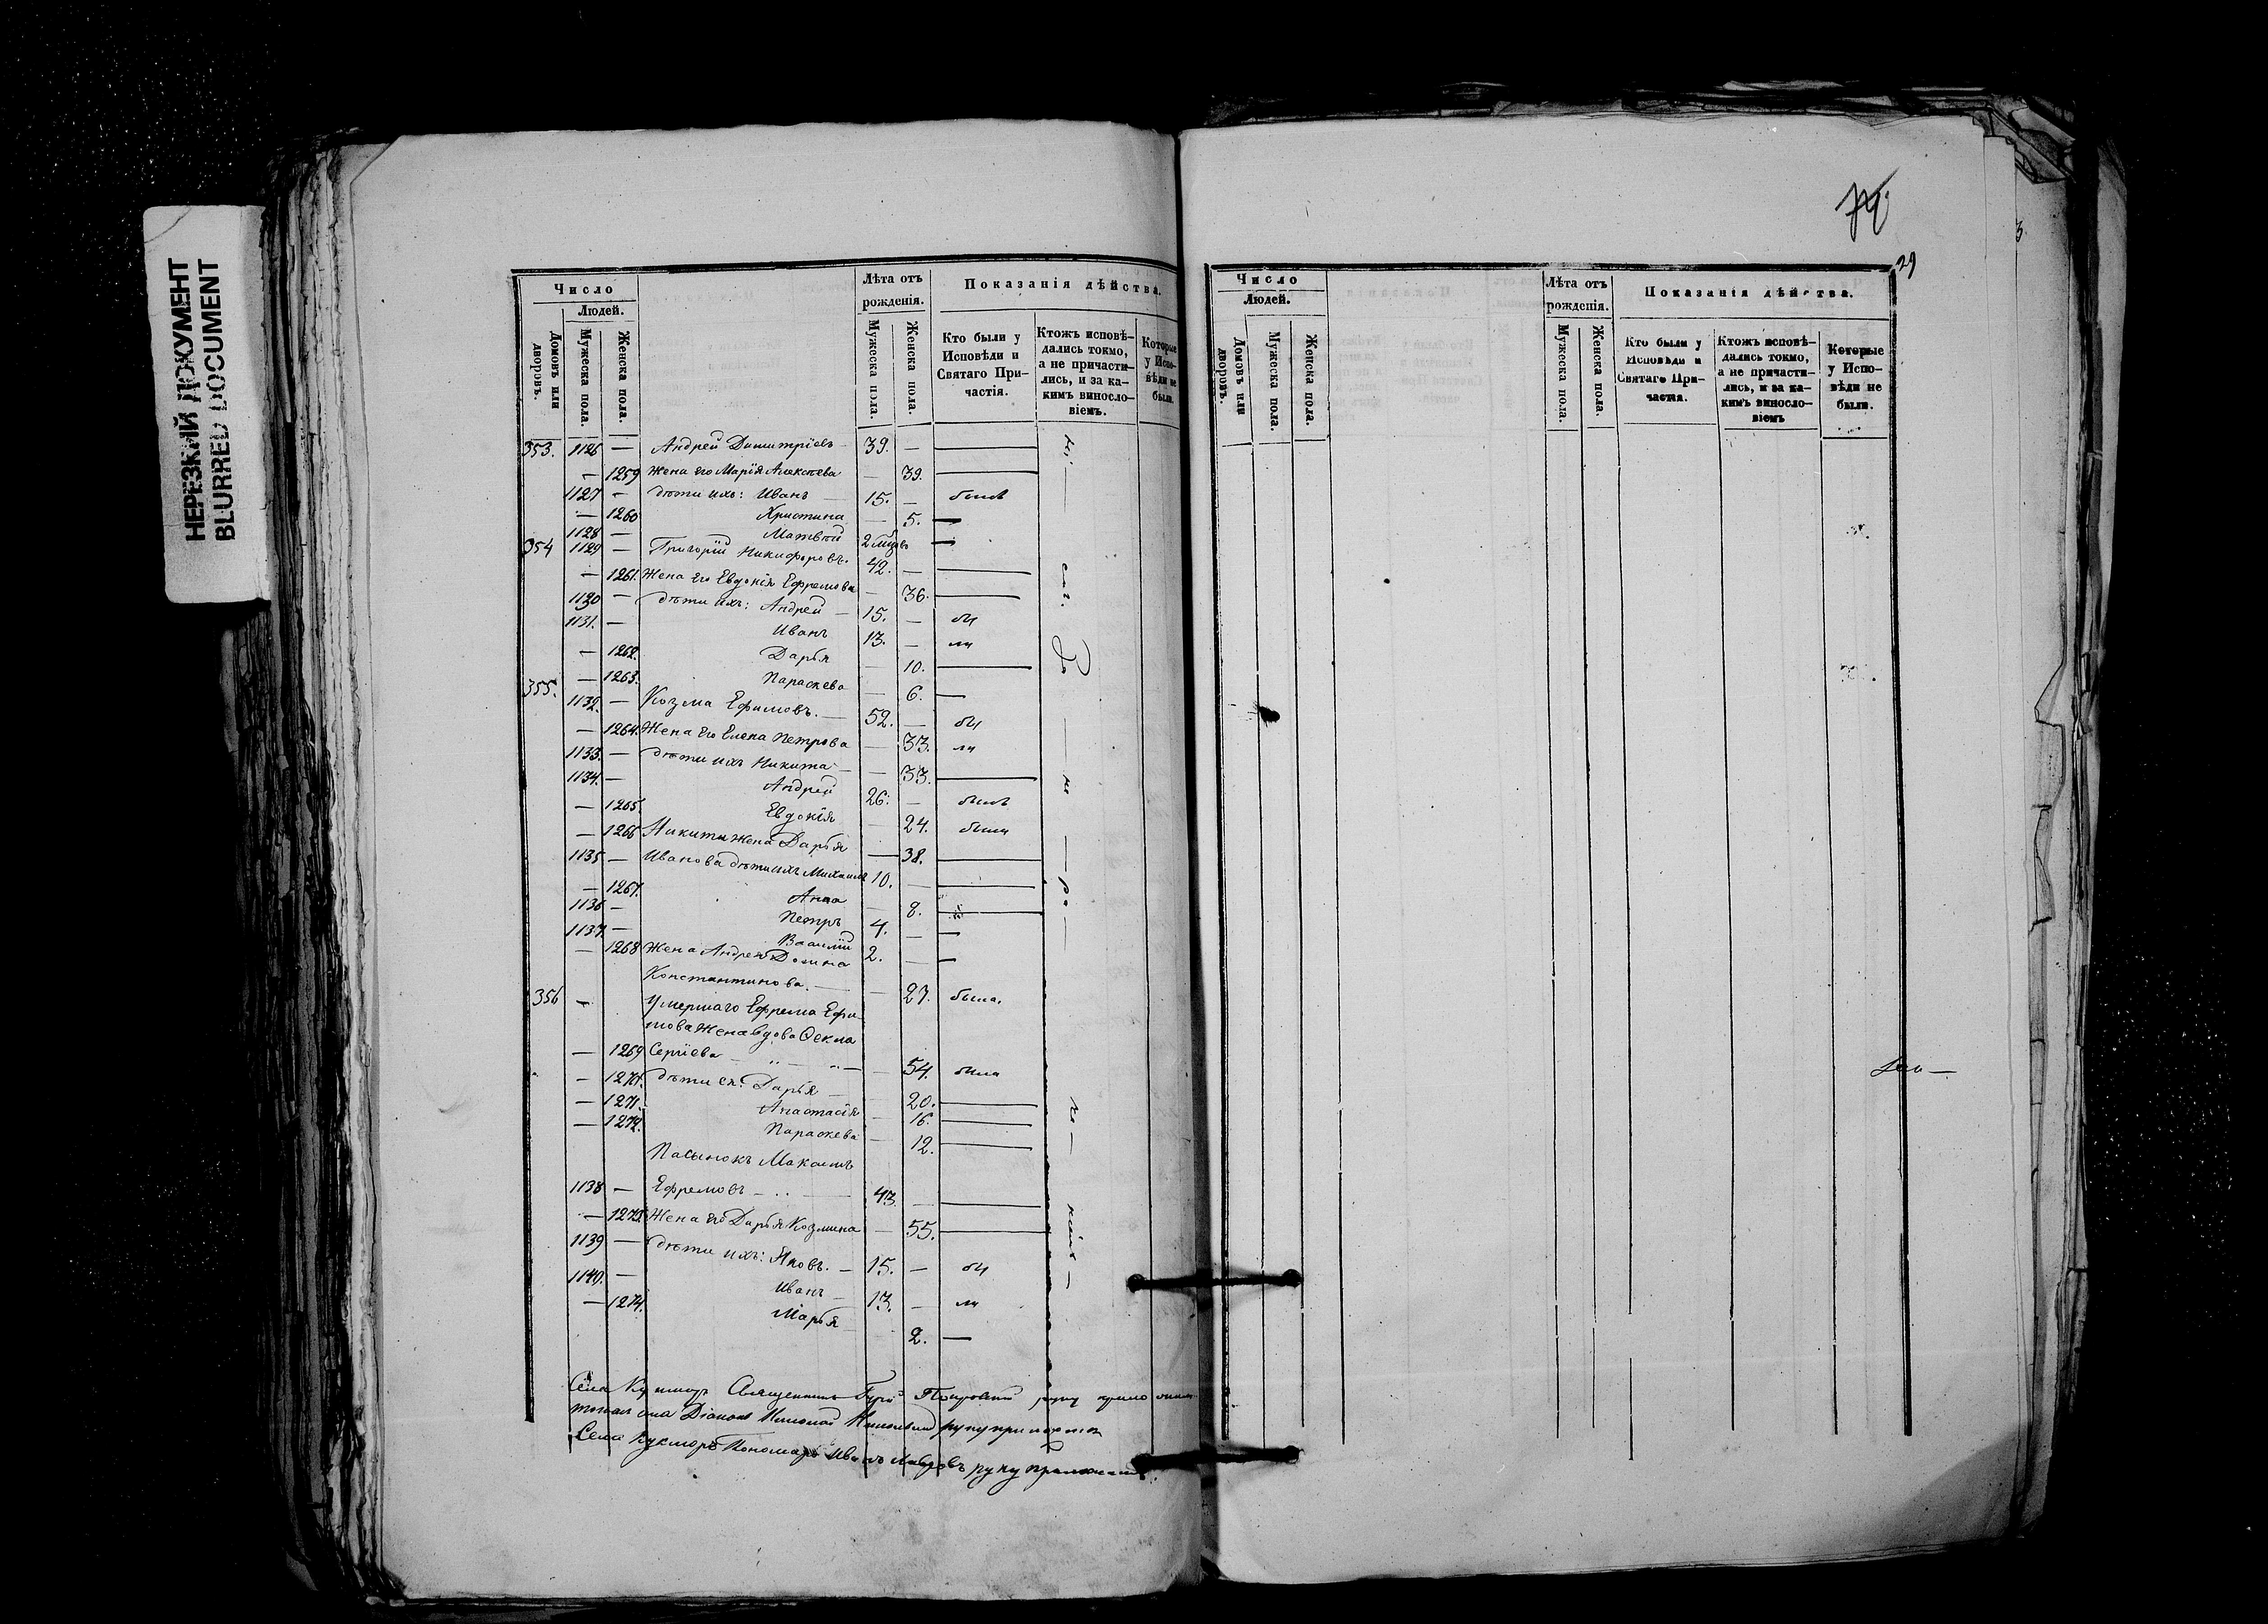 НЕРЕЗКИЙ ДОКУМЕНТ
BLURRED DOCUMENT
29
Число
Людей.
Домовъ или дворовъ.
Мужеска пола.
Женска пола.
Лѣта отъ рожденія.
Мужеска пола.
Женска пола.
Показанія дѣйства.
Кто были у Исповѣди и Святаго Причастія.
Ктожъ исповѣдались токмо, а не причастились, и за какимъ винословіемъ.
Которые у Исповѣди не были.
353. 1126 — Андрей Димитріевъ 39. —
— 1259 Жена его Марія Алексѣева — 39.
1127 — дѣти ихъ: Иванъ 15. — былъ
— 1260 Христина — 5. —
1128 — Матвѣй 2 —
354 1129 — Григорій Никифоровъ. 42. —
— 1261. Жена его Евдокія Ефремова — 36.
1130 — дѣти ихъ: Андрей 15. — бы
1131. — Иванъ 13. — ли
— 1262. Дарья — 10.
— 1263. Параскева — 6. —
355. 1132. — Козма Ефимовъ. 52. — бы
— 1264. Жена его Елена Петрова — 33. ли
1133. — дѣти ихъ Никита — 33.
1134. — Андрей 26. — былъ
— 1265. Евдокія — 24. была
— 1266 Никиты жена Дарья — 38.
1135 — Иванова дѣти ихъ Михаилъ 10. —
— 1267. Анна — 8.
1136 — Петръ 4. —
1137. — Василій 2. —
— 1268 Жена Андрея Домна
Константинова. — 27. была.
356 — Умершаго Ефрема Ефи
мова жена вдова Ѳекла
— 1269 Сергіева — 54. была
— 1270. дѣти ея: Дарья — 20.
— 1271. Анастасія — 16.
— 1272. Параскева — 12.
Пасынокъ Максимъ
1138 — Ефремовъ 43. —
— 1273. Жена его Дарья Козмина — 55.
1139 — дѣти ихъ: Яковъ. 15. — бы
1140. — Иванъ 13. — ли
— 1274. Марья 2. —
Села Священникъ руку
Діаконъ Николай руку приложилъ
Села Пономарь Иванъ руку приложилъ.
Число
Людей.
Домовъ или дворовъ.
Мужеска пола.
Женска пола.
Лѣта отъ рожденія.
Мужеска пола.
Женска пола.
Показанія дѣйства.
Кто были у Исповѣди и Святаго Причастія.
Ктожъ исповѣдались токмо, а не причастились, и за какимъ винословіемъ
Которые у Исповѣди не были.